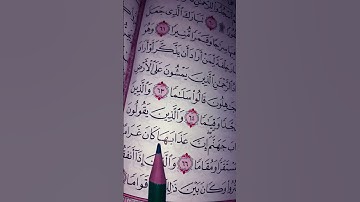 تَبَارَكَ الَّذِي جَعَلَ
وَقَمَرًا مُّنِيرًا ٦١ وَهُوَ
لِّمَنْ أَرَادَ أَن يَذَّكَّرَ أَوْ أَرَادَ
الَّذِينَ يَمْشُونَ عَلَى الْأَرْضِ
قَالُوا سَلَامًا ٦٣ وَالَّذِينَ
وَقِيَامًا ٦٤ وَالَّذِينَ يَقُولُونَ
جَهَنَّمَ إِنَّ عَذَابَهَا كَانَ غَرَامًا
مُسْتَقَرًّا وَمُقَامًا ٦٦ وَالَّذِينَ إِذَا أَنفَقُوا
وَكَانَ بَيْنَ ذَٰلِكَ قَوَامًا